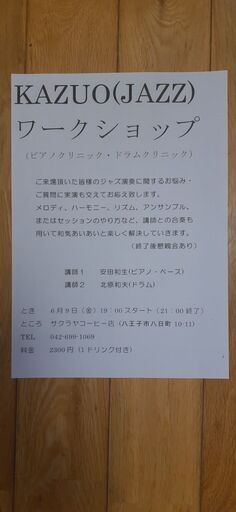 KAZUO(JAZZ)
ワークショップ
(ピアノクリニック・ドラムクリニック)
ご来場頂いた皆様のジャズ演奏に関するお悩み・
ご質問に実演も交えてお応え致します。
メロディ、ハーモニー、リズム、アンサンブル、
またはセッションのやり方など、講師との合奏も
用いて和気あいあいと楽しく解決していきます。
(終了後懇親会あり)
講師1 安田和生(ピアノ・ベース)
講師2 北原和夫(ドラム)
とき 6月9日(金)19:00スタート(21:00終了)
ところ サクラヤコーヒー店(八王子市八日町10-11)
TEL 042-699-1069
料金 2300円(1ドリンク付き)